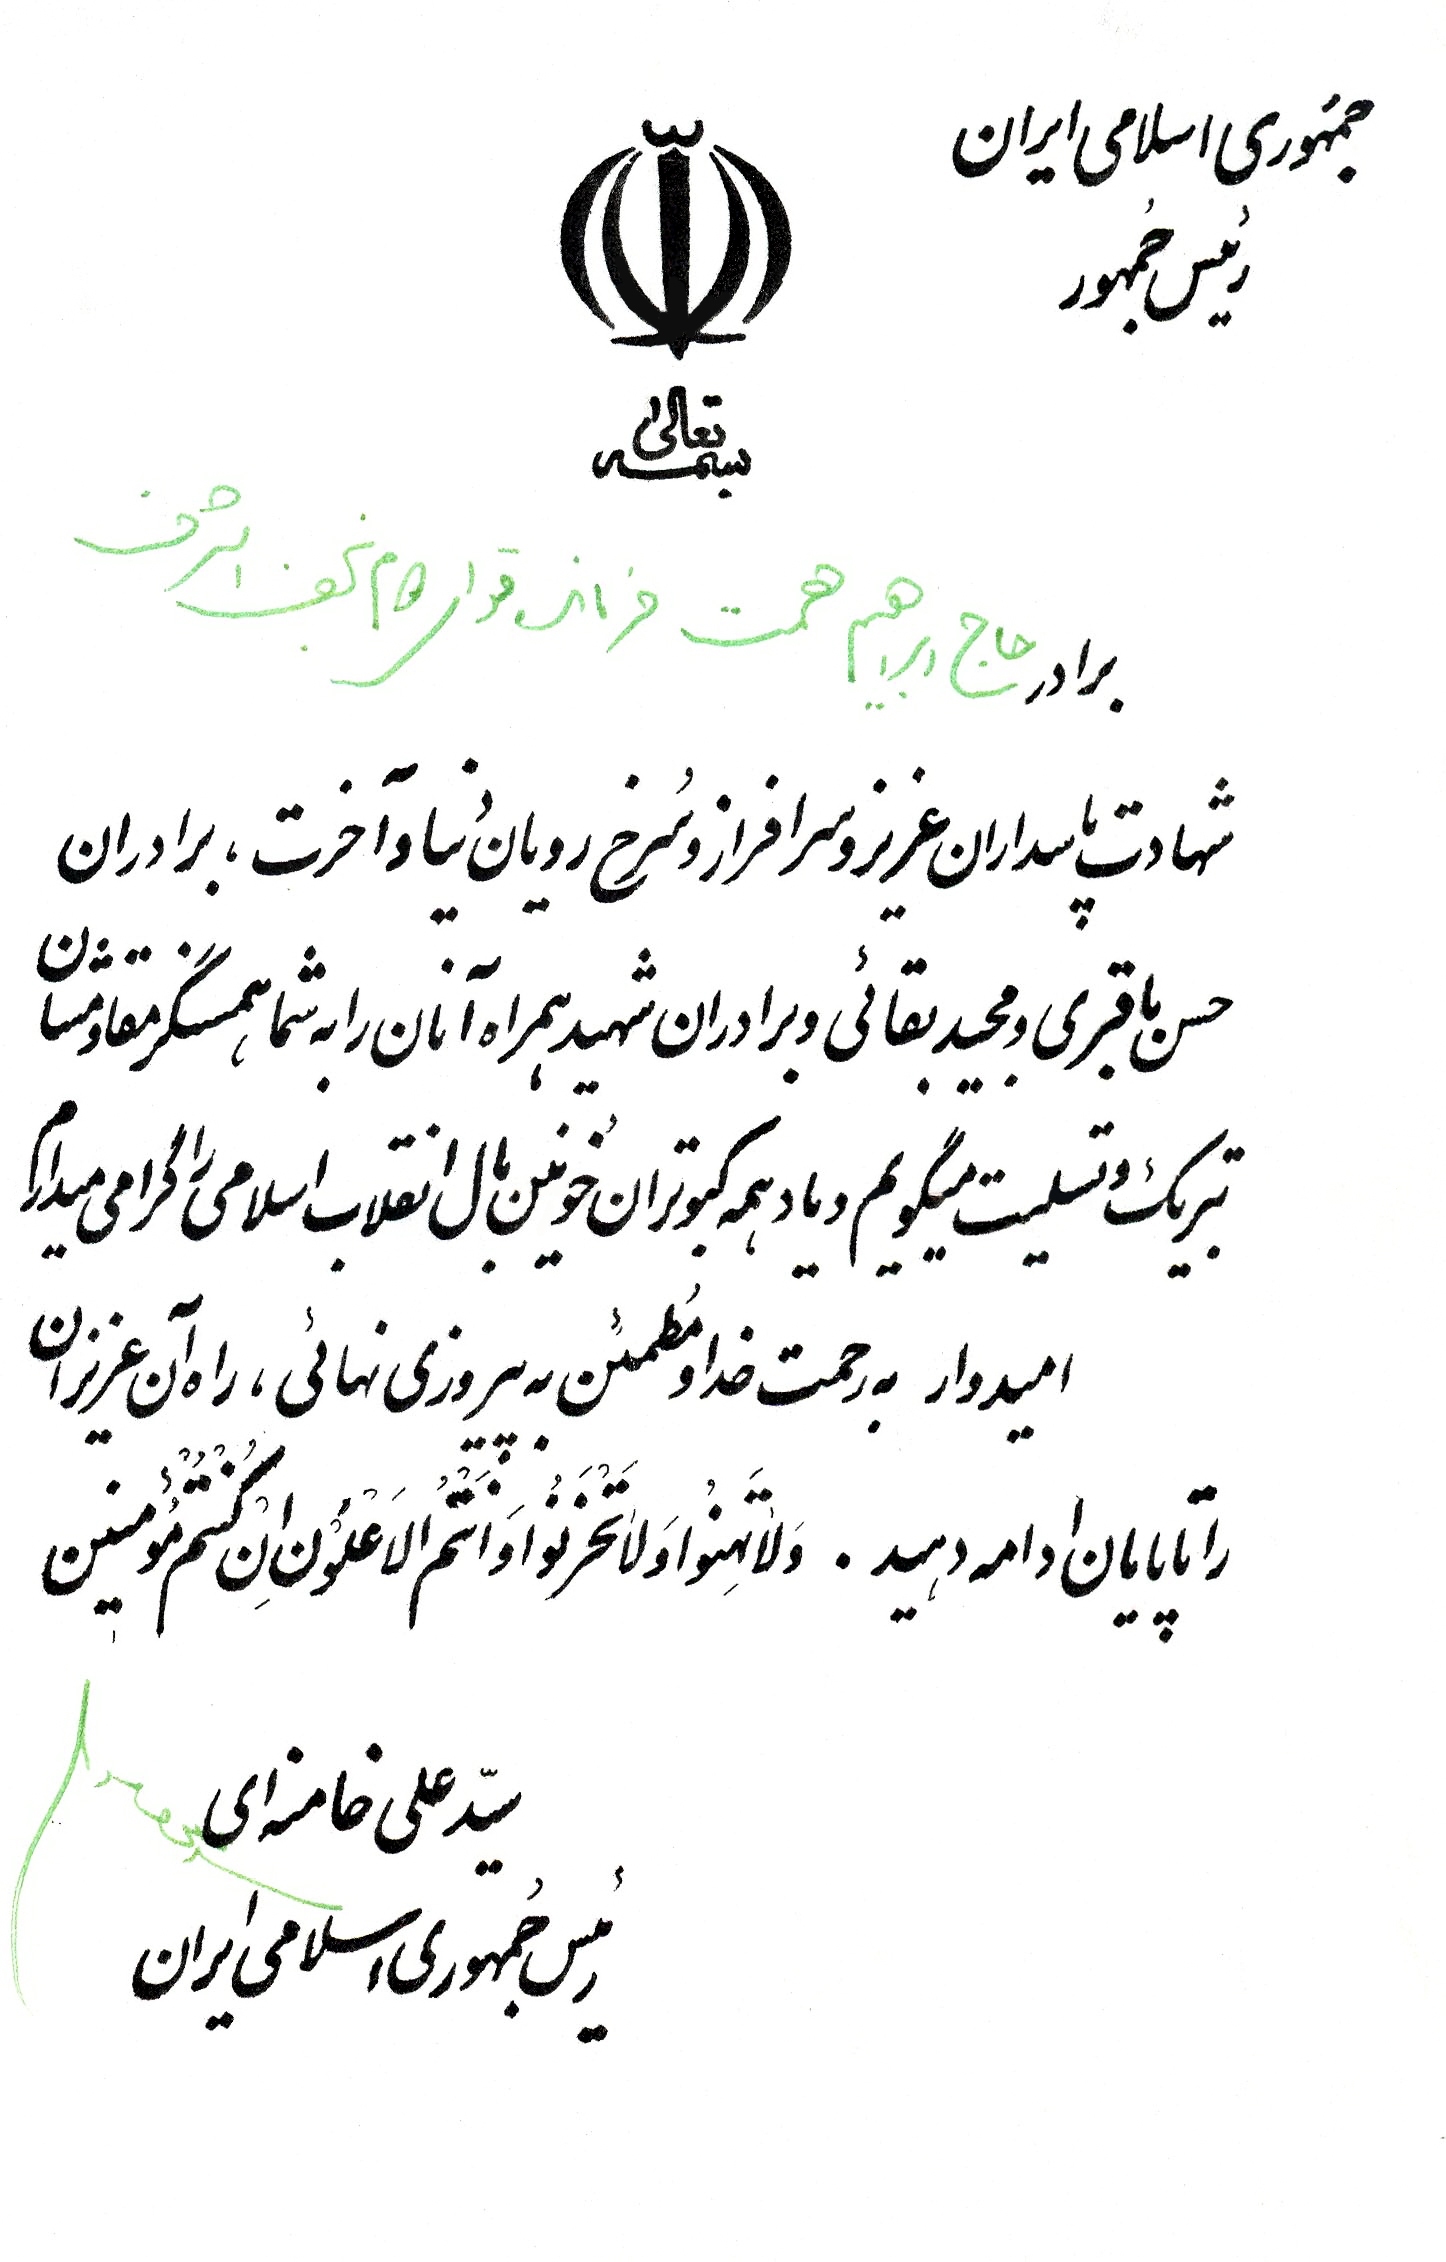 جمهوری اسلامی ایران
رئیس جُمهور
بسمه تعالی
برادر حاج ابراهیم همت فرمانده قوای ۱۱ام نجف اشرف
شهادت پاسداران عزیز و سرافراز و سُرخ رویان دُنیا و آخرت ، برادران
حسن باقری و مجید بقائی و برادران شهید همراه آنان را به شما همسنگر مقاومشان
تبریک و تسلیت میگویم و یاد همه کبوتران خونین بال انقلاب اسلامی را گرامی میدارم
امیدوار به رحمت خدا و مُطمئن به پیروزی نهائی ، راه آن عزیزان
را تا پایان ادامه دهید . وَلاٰتَهِنُوا وَلاٰتَحْزَنُوا وَاَنْتُمُ الاَعْلَوْن اِنْ كُنْتُمْ مُؤمنین
سیّد علی خامنه ای
رئیس جُمهوری اسلامی ایران